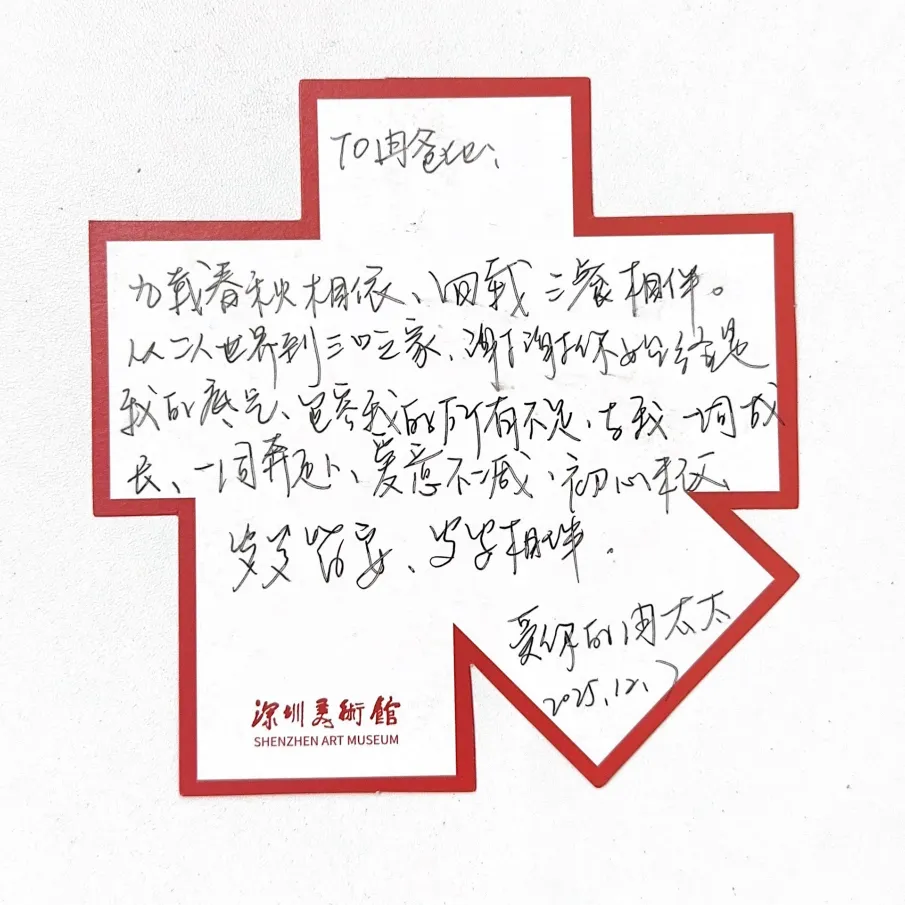 TO周爸比、
九载春秋相依、四载三餐相伴。
从二人世界到三口之家、谢谢你始终是
我的底气、包容我的所有不足、与我一同成
长、一同奔赴、爱意不减、初心未改、
岁岁皆安、岁岁相伴。
爱你的周太太
2025.12.7
深圳美術館
SHENZHEN ART MUSEUM